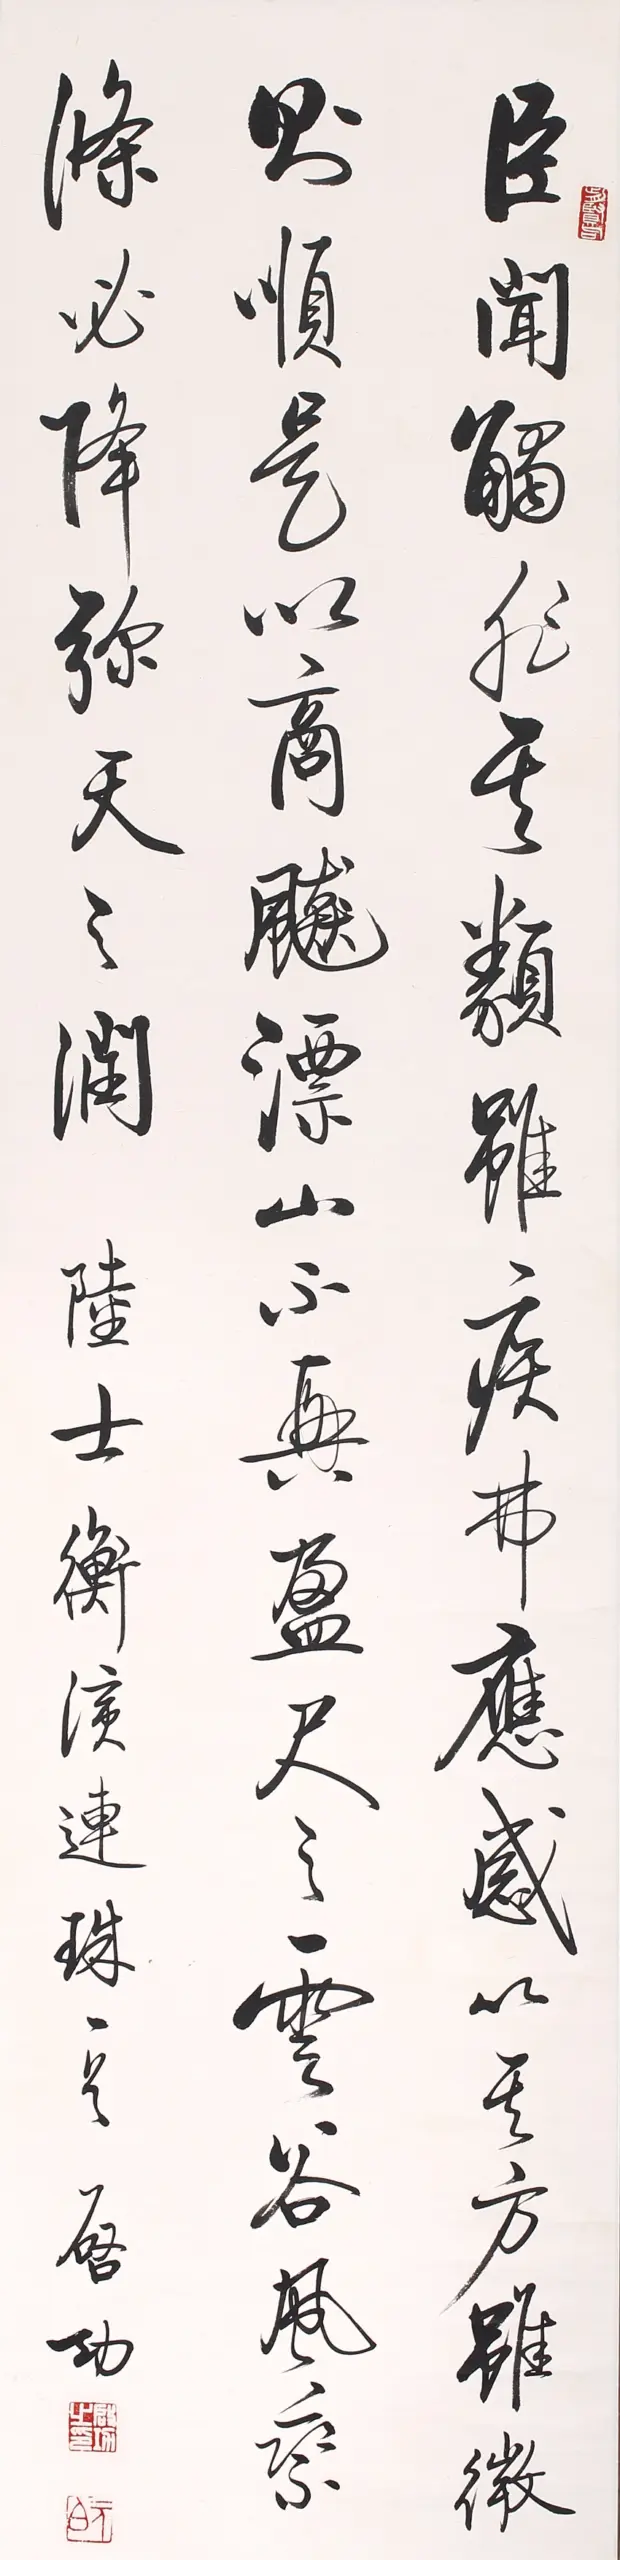 臣聞觸非其類雖疾弗應感以其方雖微
則順是以商飈漂山不興盈尺之雲谷風乘
條必降弥天之潤 陸士衡演連珠一首 啓功
啓功之印
元白